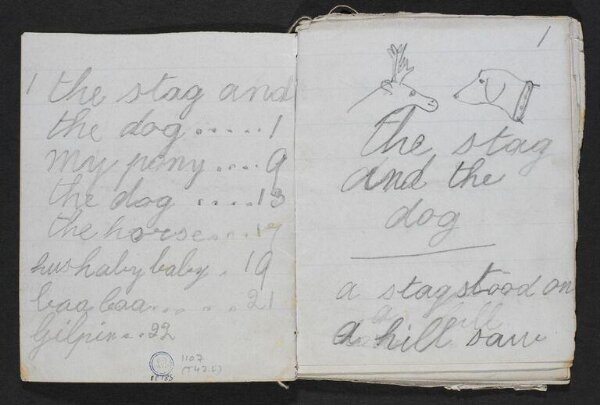 1 the stag and
the dog.....1
my pony....9
the dog ....13
the horse....17
hushabybaby.19
baa baa.....21
Gilpin..22
1107
(T42L)
1
the stag
and the
dog
a stag stood on
a hill saw